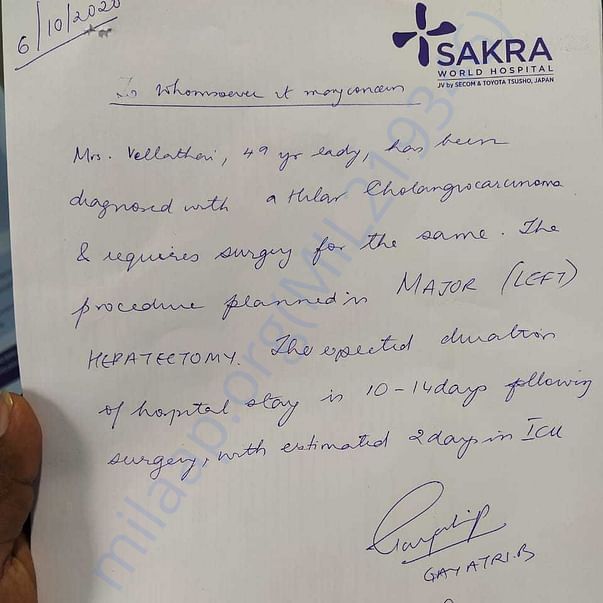 6/10/2020
SAKRA
WORLD HOSPITAL
JV by SECOM & TOYOTA TSUSHO, JAPAN
To Whomsoever it may concern
Mrs. Vellathai, 49 yr lady, has been
diagnosed with a Hilar Cholangiocarcinoma
& requires surgery for the same. The
procedure planned is MAJOR (LEFT)
HEPATECTOMY. The expected duration
of hospital stay is 10-14 days following
surgery, with estimated 2 days in ICU
GAYATRI.B
milaap.org(MIL_2193